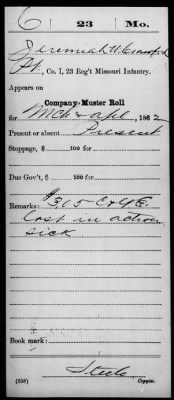 C 23 Mo.
Jeremiah W. Crawford
Pt, Co. I, 23 Reg't Missouri Infantry.
Appears on
Company-Muster Roll
for Mch & Apl, 1862
Present or absent Present
Stoppage, $ 100 for
Due Gov't, $ 100 for
Remarks: $3.05 C & G E.
lost in action
sick
Book mark:
Steele
(358) Copyist.